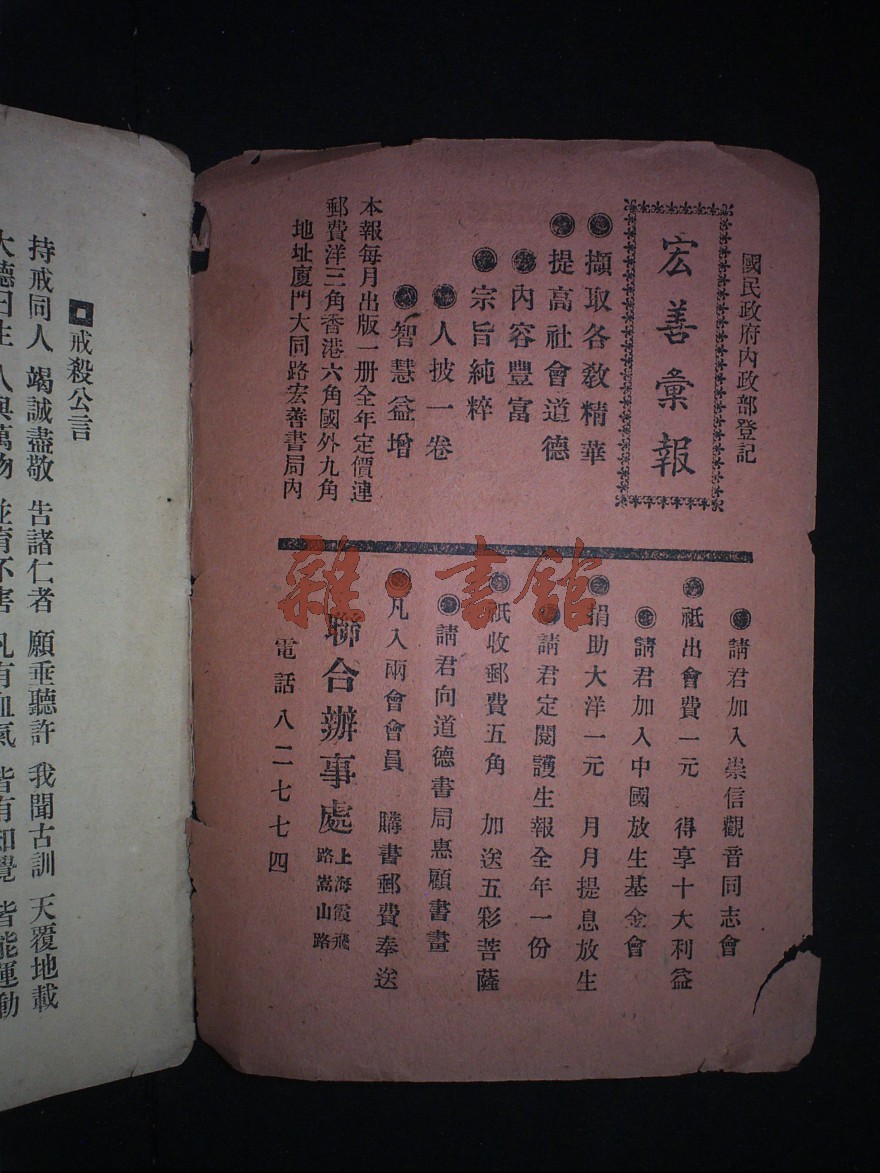 國民政府內政部登記
宏善彙報
擷取各教精華
提高社會道德
內容豐富
宗旨純粹
人披一卷
智慧益增
本報每月出版一冊全年定價連
郵費洋三角香港六角國外九角
地址廈門大同路宏善書局內
請君加入崇信觀音同志會
祗出會費一元 得享十大利益
請君加入中國放生基金會
捐助大洋一元 月月提息放生
請君定閱護生報全年一份
祇收郵費五角 加送五彩菩薩
請君向道德書局惠顧書畫
凡入兩會會員 購書郵費奉送
聯合辦事處
上海霞飛
路嵩山路
電話八二七七四
雜·書館
戒殺公言
持戒同人 竭誠盡敬 告諸仁者 願垂聽許 我聞古訓 天覆地載
大德曰生 人與萬物 並育不害 凡有血氣 皆有知覺 皆能運動